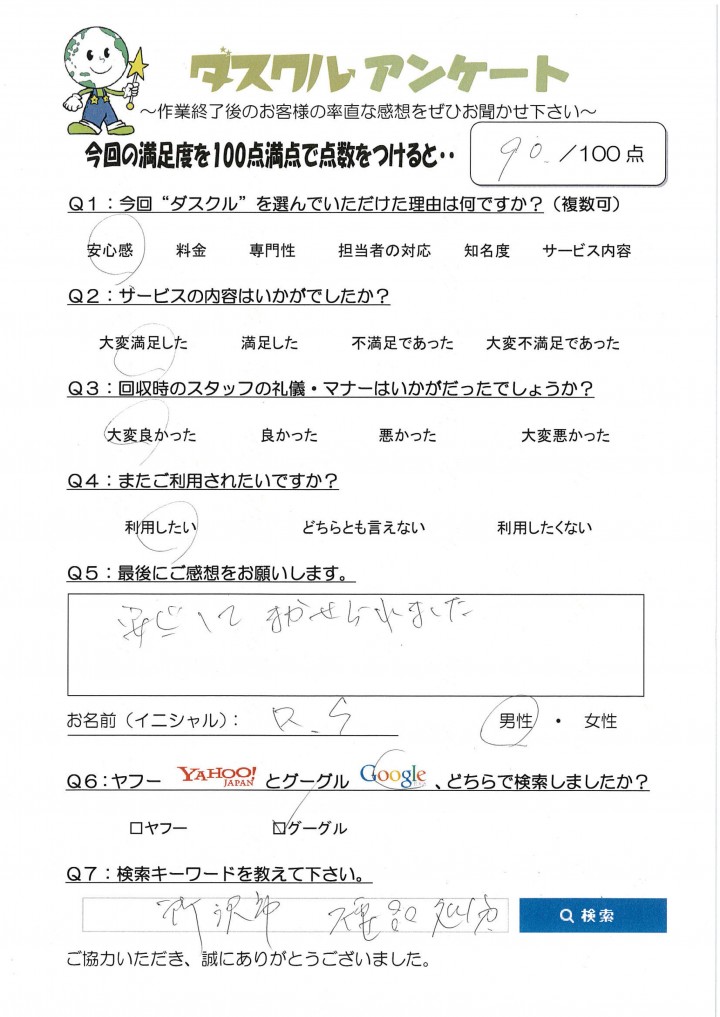 ダスクル アンケート
～作業終了後のお客様の率直な感想をぜひお聞かせ下さい～
今回の満足度を100点満点で点数をつけると・・ 90. /100 点
Q1：今回“ダスクル”を選んでいただけた理由は何ですか？（複数可）
安心感 料金 専門性 担当者の対応 知名度 サービス内容
Q2：サービスの内容はいかがでしたか？
大変満足した 満足した 不満足であった 大変不満足であった
Q3：回収時のスタッフの礼儀・マナーはいかがだったでしょうか？
大変良かった 良かった 悪かった 大変悪かった
Q4：またご利用されたいですか？
利用したい どちらとも言えない 利用したくない
Q5：最後にご感想をお願いします。
安心して まかせられました
お名前（イニシャル）： R.S 男性 ・ 女性
Q6：ヤフー YAHOO! JAPAN とグーグル Google 、どちらで検索しましたか？
□ヤフー ☑グーグル
Q7：検索キーワードを教えて下さい。
所沢市 処分 検索
ご協力いただき、誠にありがとうございました。